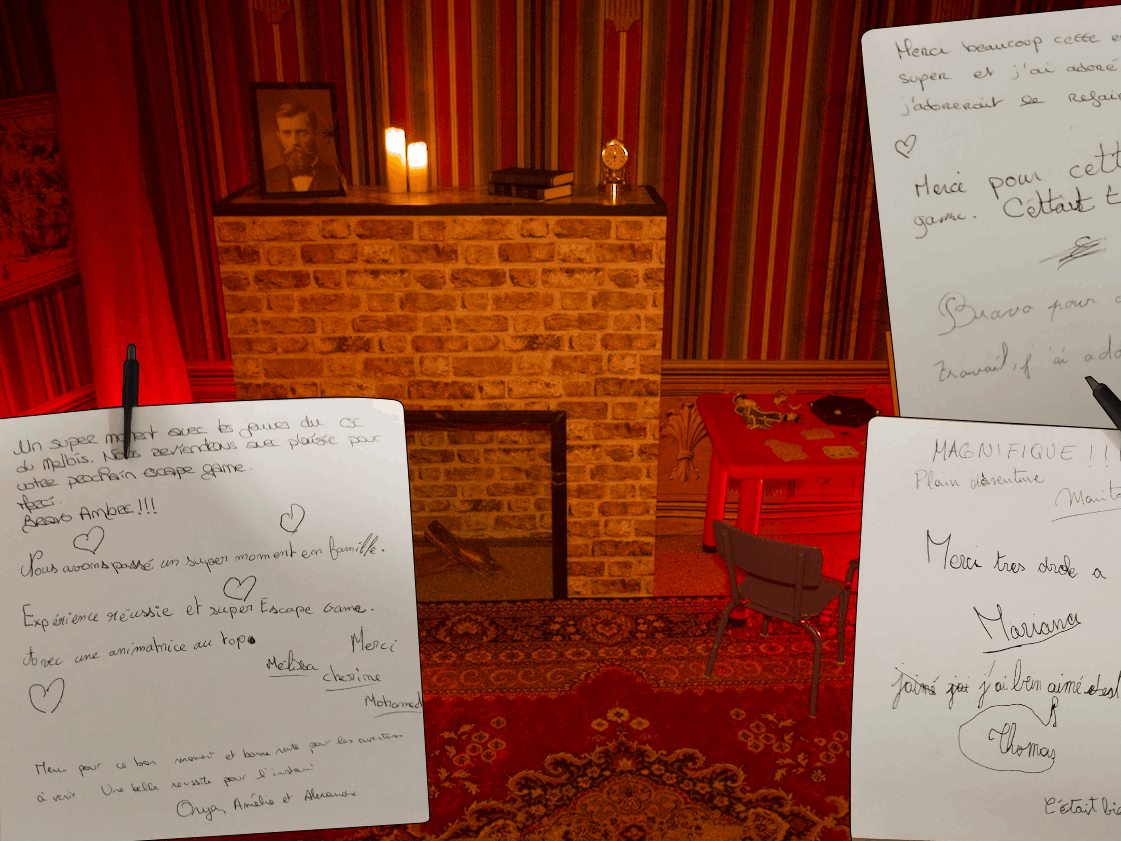 Un super moment avec les jeunes du CSC
du Malbis. Nous reviendrons avec plaisir pour
votre prochain escape game.
Merci.
Bravo Ambre!!!
Nous avons passé un super moment en famille.
Expérience réussie et super Escape Game.
Avec une animatrice au top
Merci
Melissa
cherine
Mohamed
Merci pour ce bon moment et bonne route pour les aventures
à venir. Une belle réussite pour l'instant!
Amélie et Alexandre
Merci beaucoup cette e
super et j'ai adoré
j'adorerait le refair
Merci pour cett
game. C'éttait t
Bravo pour
travail, j'ai ado
MAGNIFIQUE!!!
Plain d'aventure
Merci tres drole a
Mariana
j'ai bien aimé c'est
Thomas
C'était bie